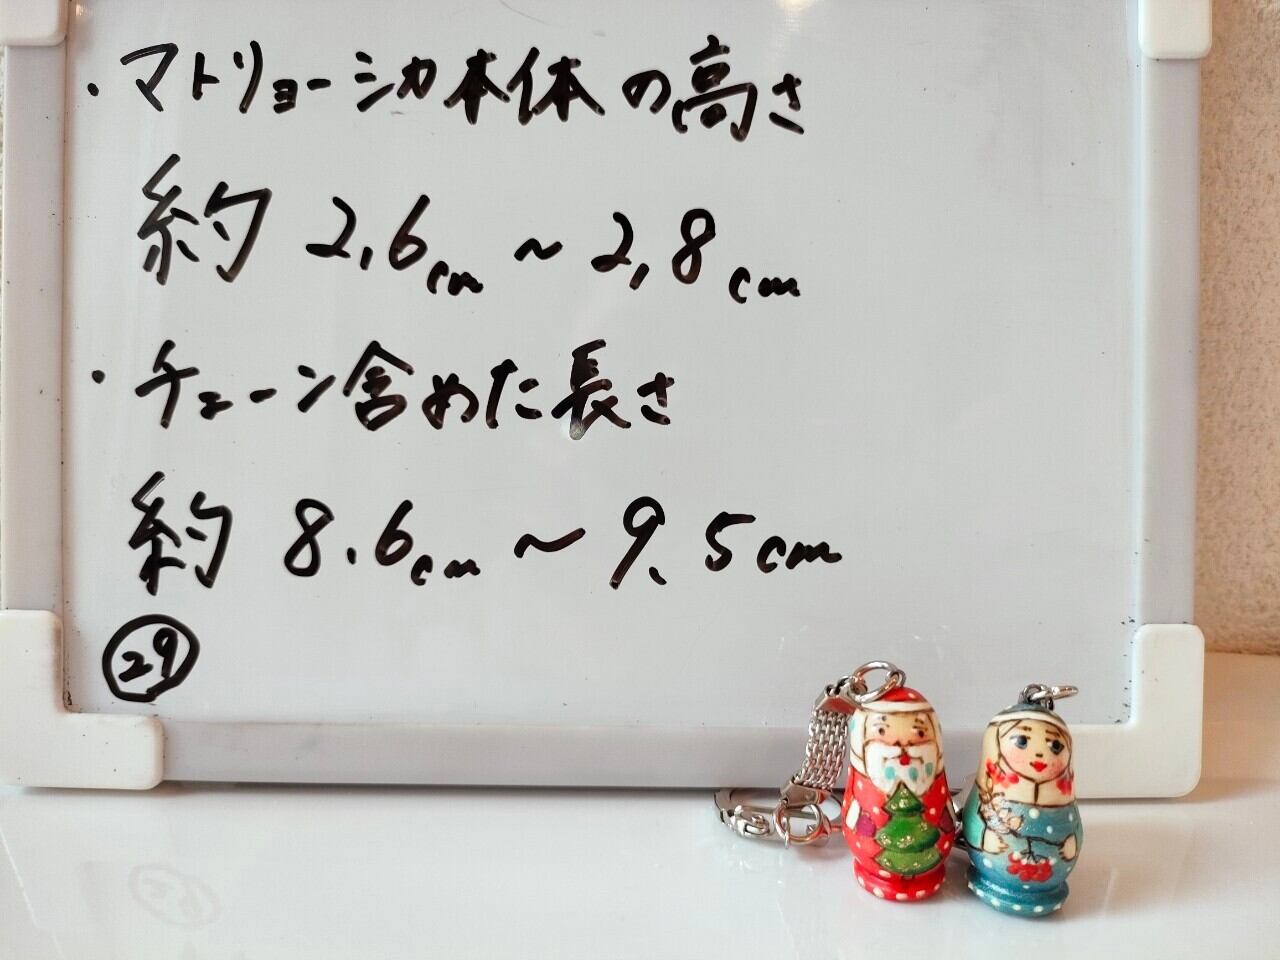 ・マトリョーシカ本体の高さ
約 2.6cm ~ 2.8cm
・チェーン含めた長さ
約 8.6cm ~ 9.5cm
㉙